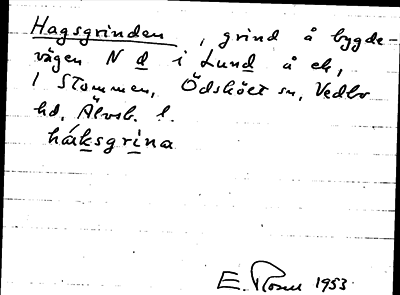 Hagsgrinden, grind å bygde-
vägen N d i Lund å ek,
1 Stommen, Ödskölt sn, Vedbo
hd, Älvsb. l.
háksgrina
E. Rosén 1953